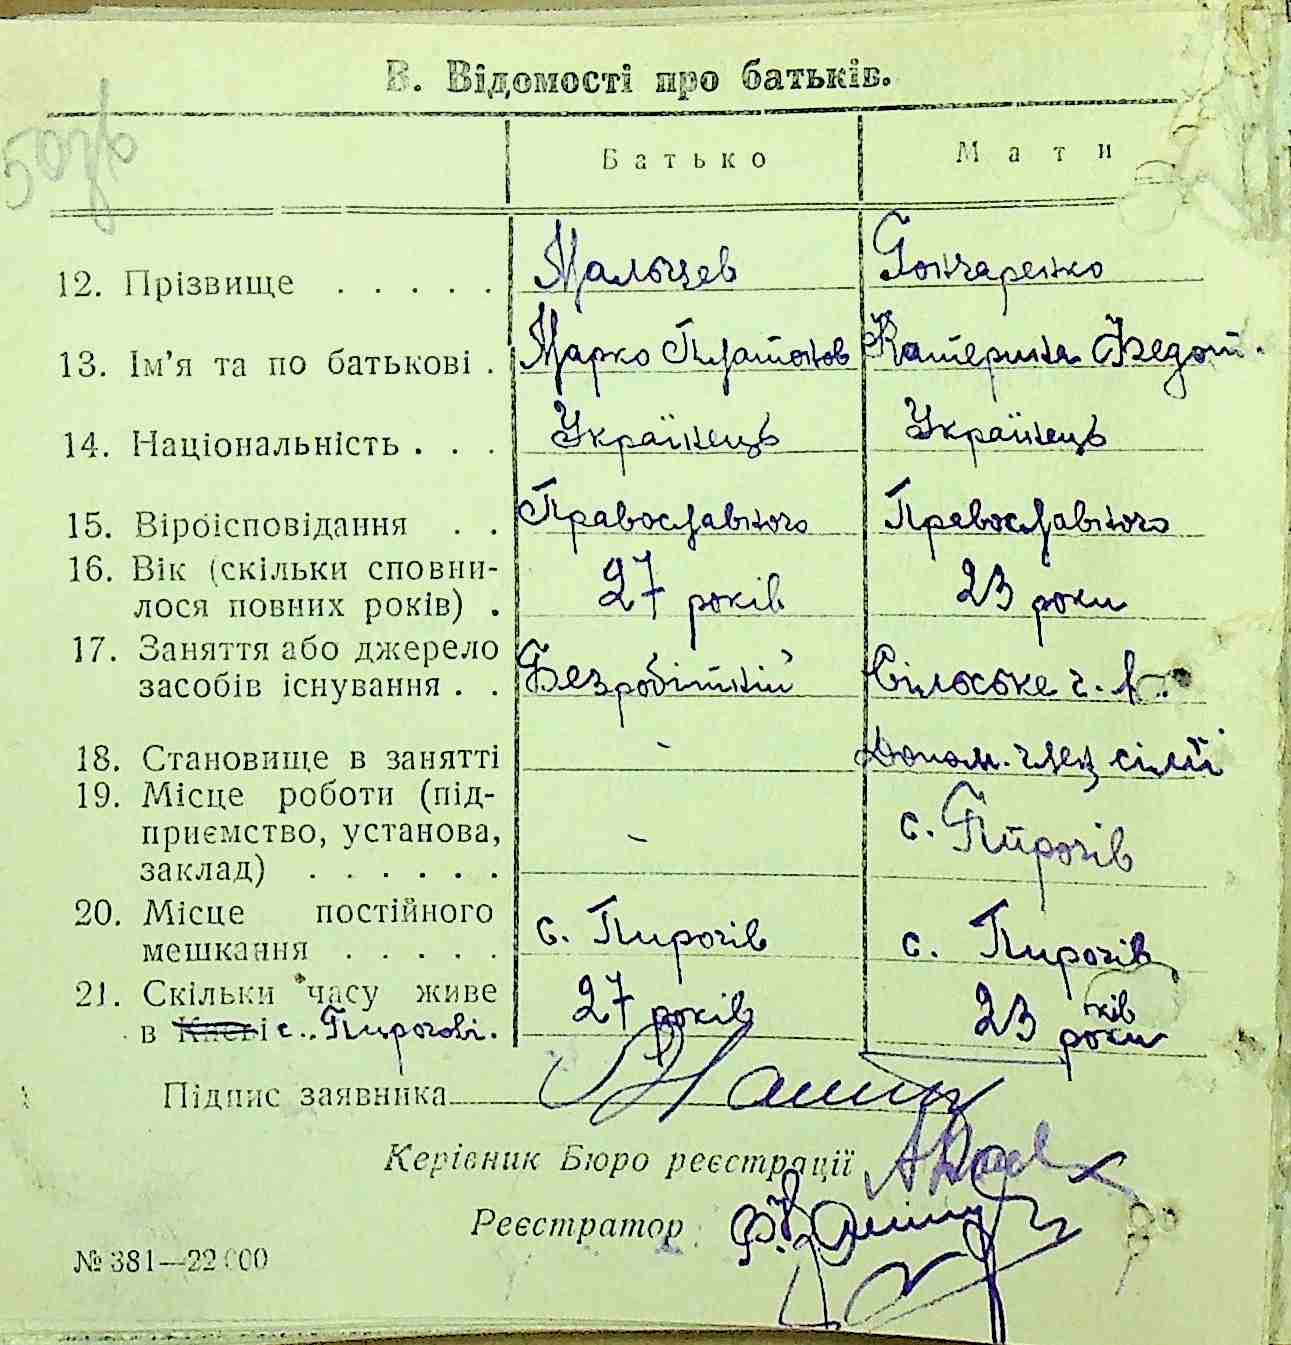 В. Відомості про батьків.
Батько Мати
12. Прізвище . . . . . Мальцев Гончаренко
13. Ім'я та по батькові . Марко Платонов Катерина Федот.
14. Національність . . . Українець Українець
15. Віроісповідання . . Православного Православного
16. Вік (скільки сповни-
лося повних років) . 27 років 23 роки
17. Заняття або джерело
засобів існування . . Безробітній Сільське г.
18. Становище в занятті - Допом. член сімї
19. Місце роботи (під-
приємство, установа,
заклад) . . . . . . - с. Пирогів
20. Місце постійного
мешкання . . . . . с. Пирогів с. Пирогів
21. Скільки часу живе 27 років 23 роки
в Києві с. Пирогові.
Підпис заявника
Керівник Бюро реєстрації
Реєстратор
№ 381—22000